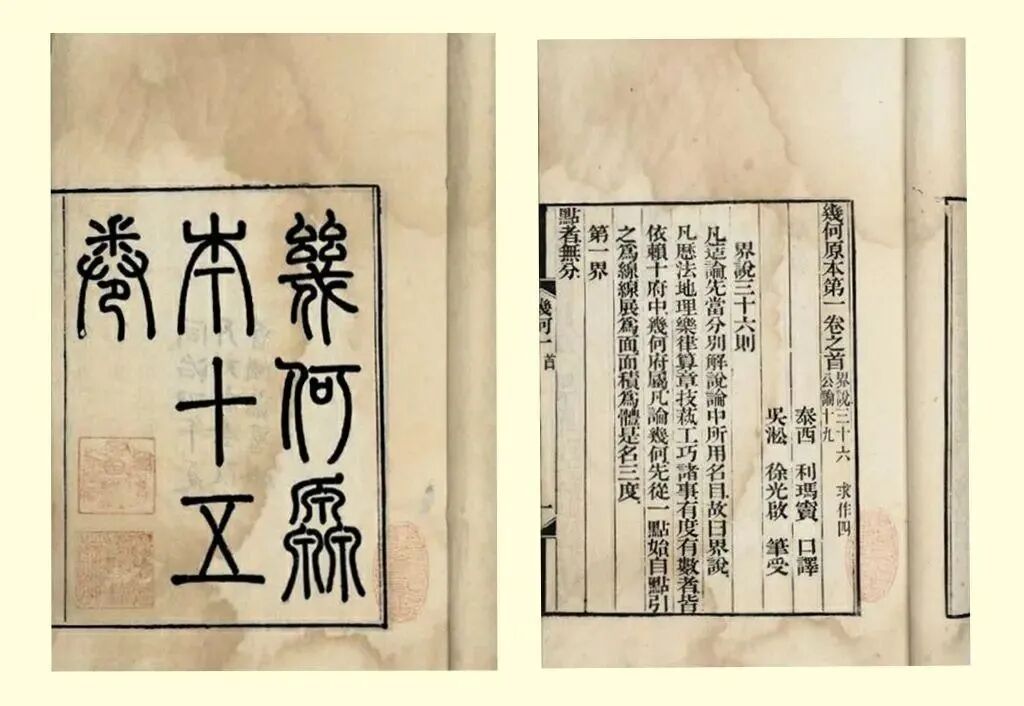 幾何原
本十五
卷
幾何原本第一卷之首
界說三十六 求作四
公論十九
泰西 利瑪竇 口譯
吳淞 徐光啟 筆受
界說三十六則
凡造論先當分別解說論中所用名目故曰界說
凡歷法地理樂律算章技藝工巧諸事有度有數者皆
依賴十府中幾何府屬凡論幾何先從一點始自點引
之為線線展為面面積為體是名三度
第一界
點者無分
幾何一 首
一